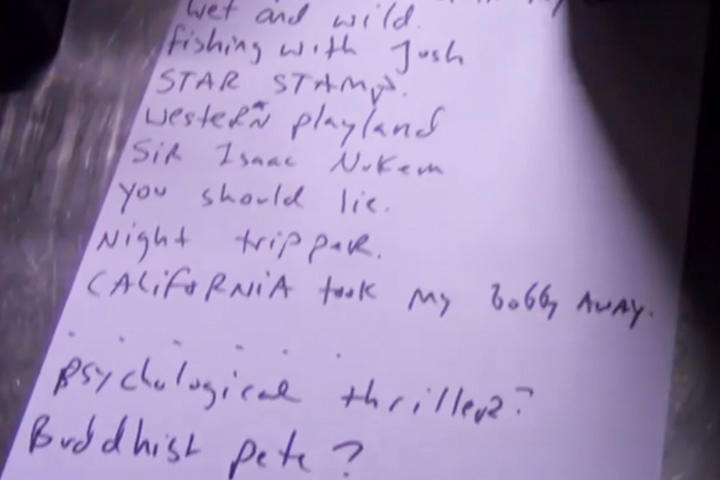 wet and wild.
fishing with Josh
STAR STAMP.
westeRN playland
SiR Isaac Nukem
you should lie.
Night trippeR.
CALiFoRNiA took my bobby AWAY.
. . . . .
psychological thrillerz?
Buddhist pete?